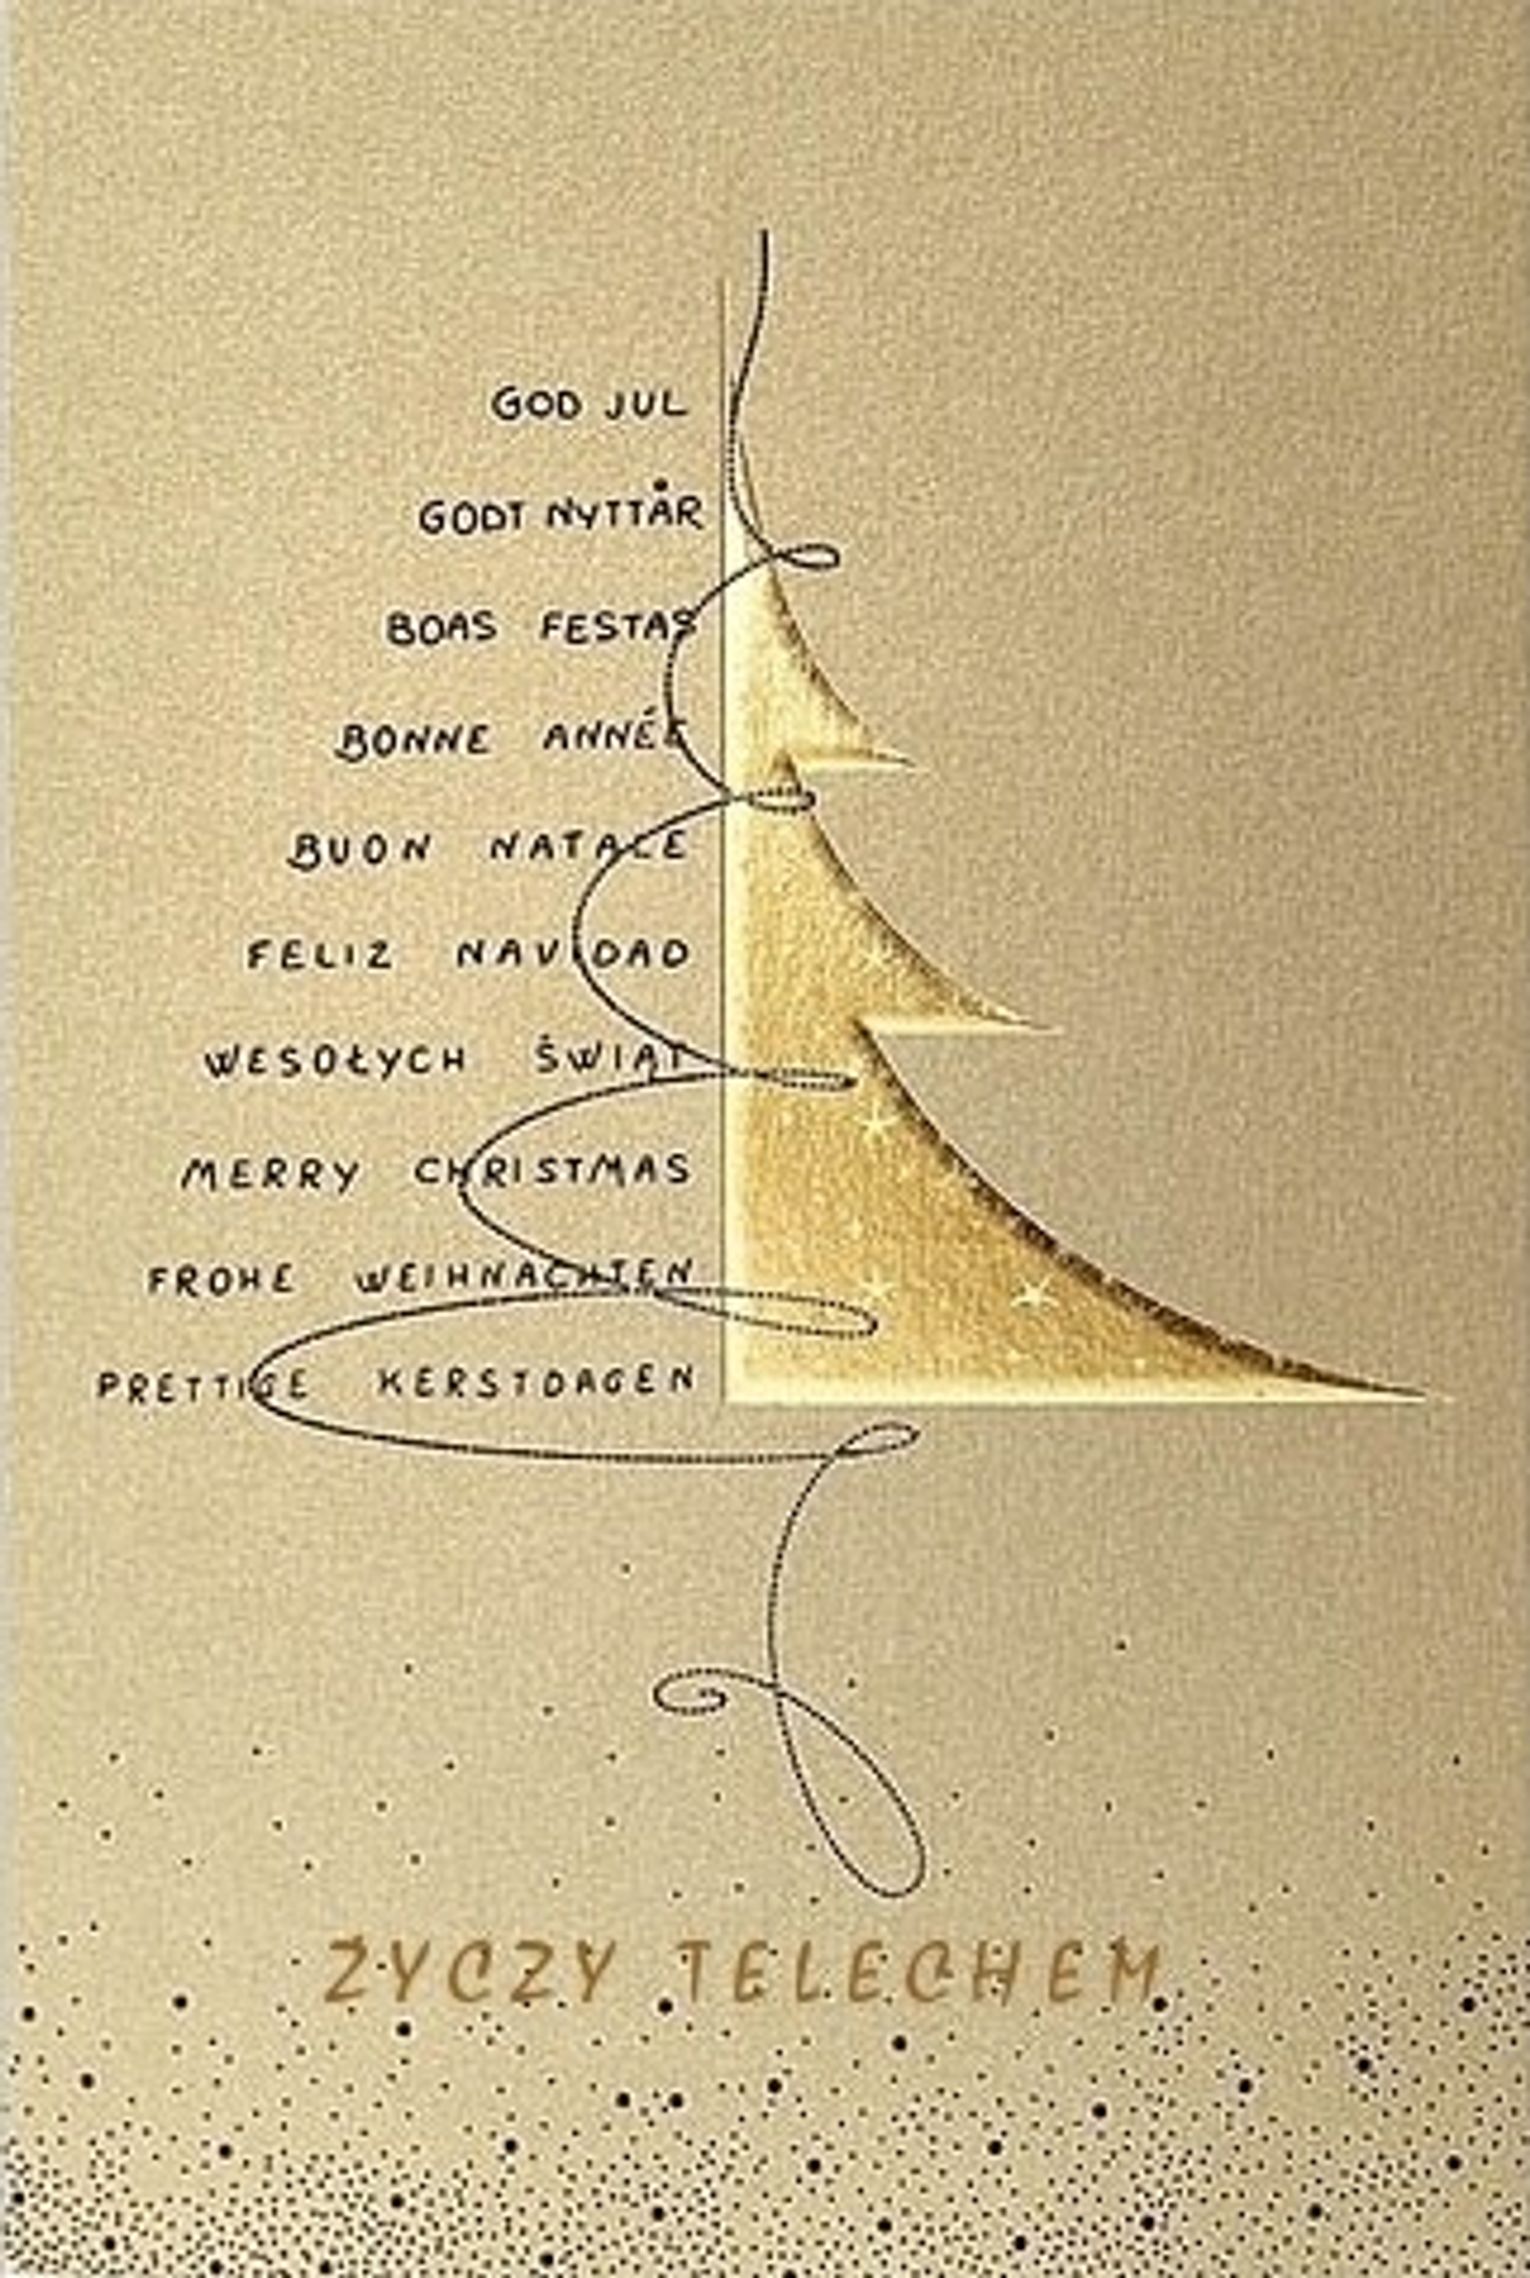 GOD JUL
GODT NYTTÅR
BOAS FESTAS
BONNE ANNÉE
BUON NATALE
FELIZ NAVIDAD
WESOŁYCH ŚWIĄT
MERRY CHRISTMAS
FROHE WEIHNACHTEN
PRETTIGE KERSTDAGEN
ZYCZY TELECHEM